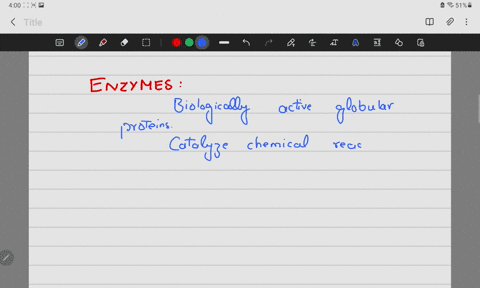 4:00
51%
Title
ENZYMES:
Biologically active globular
proteins.
Catalyze chemical reac